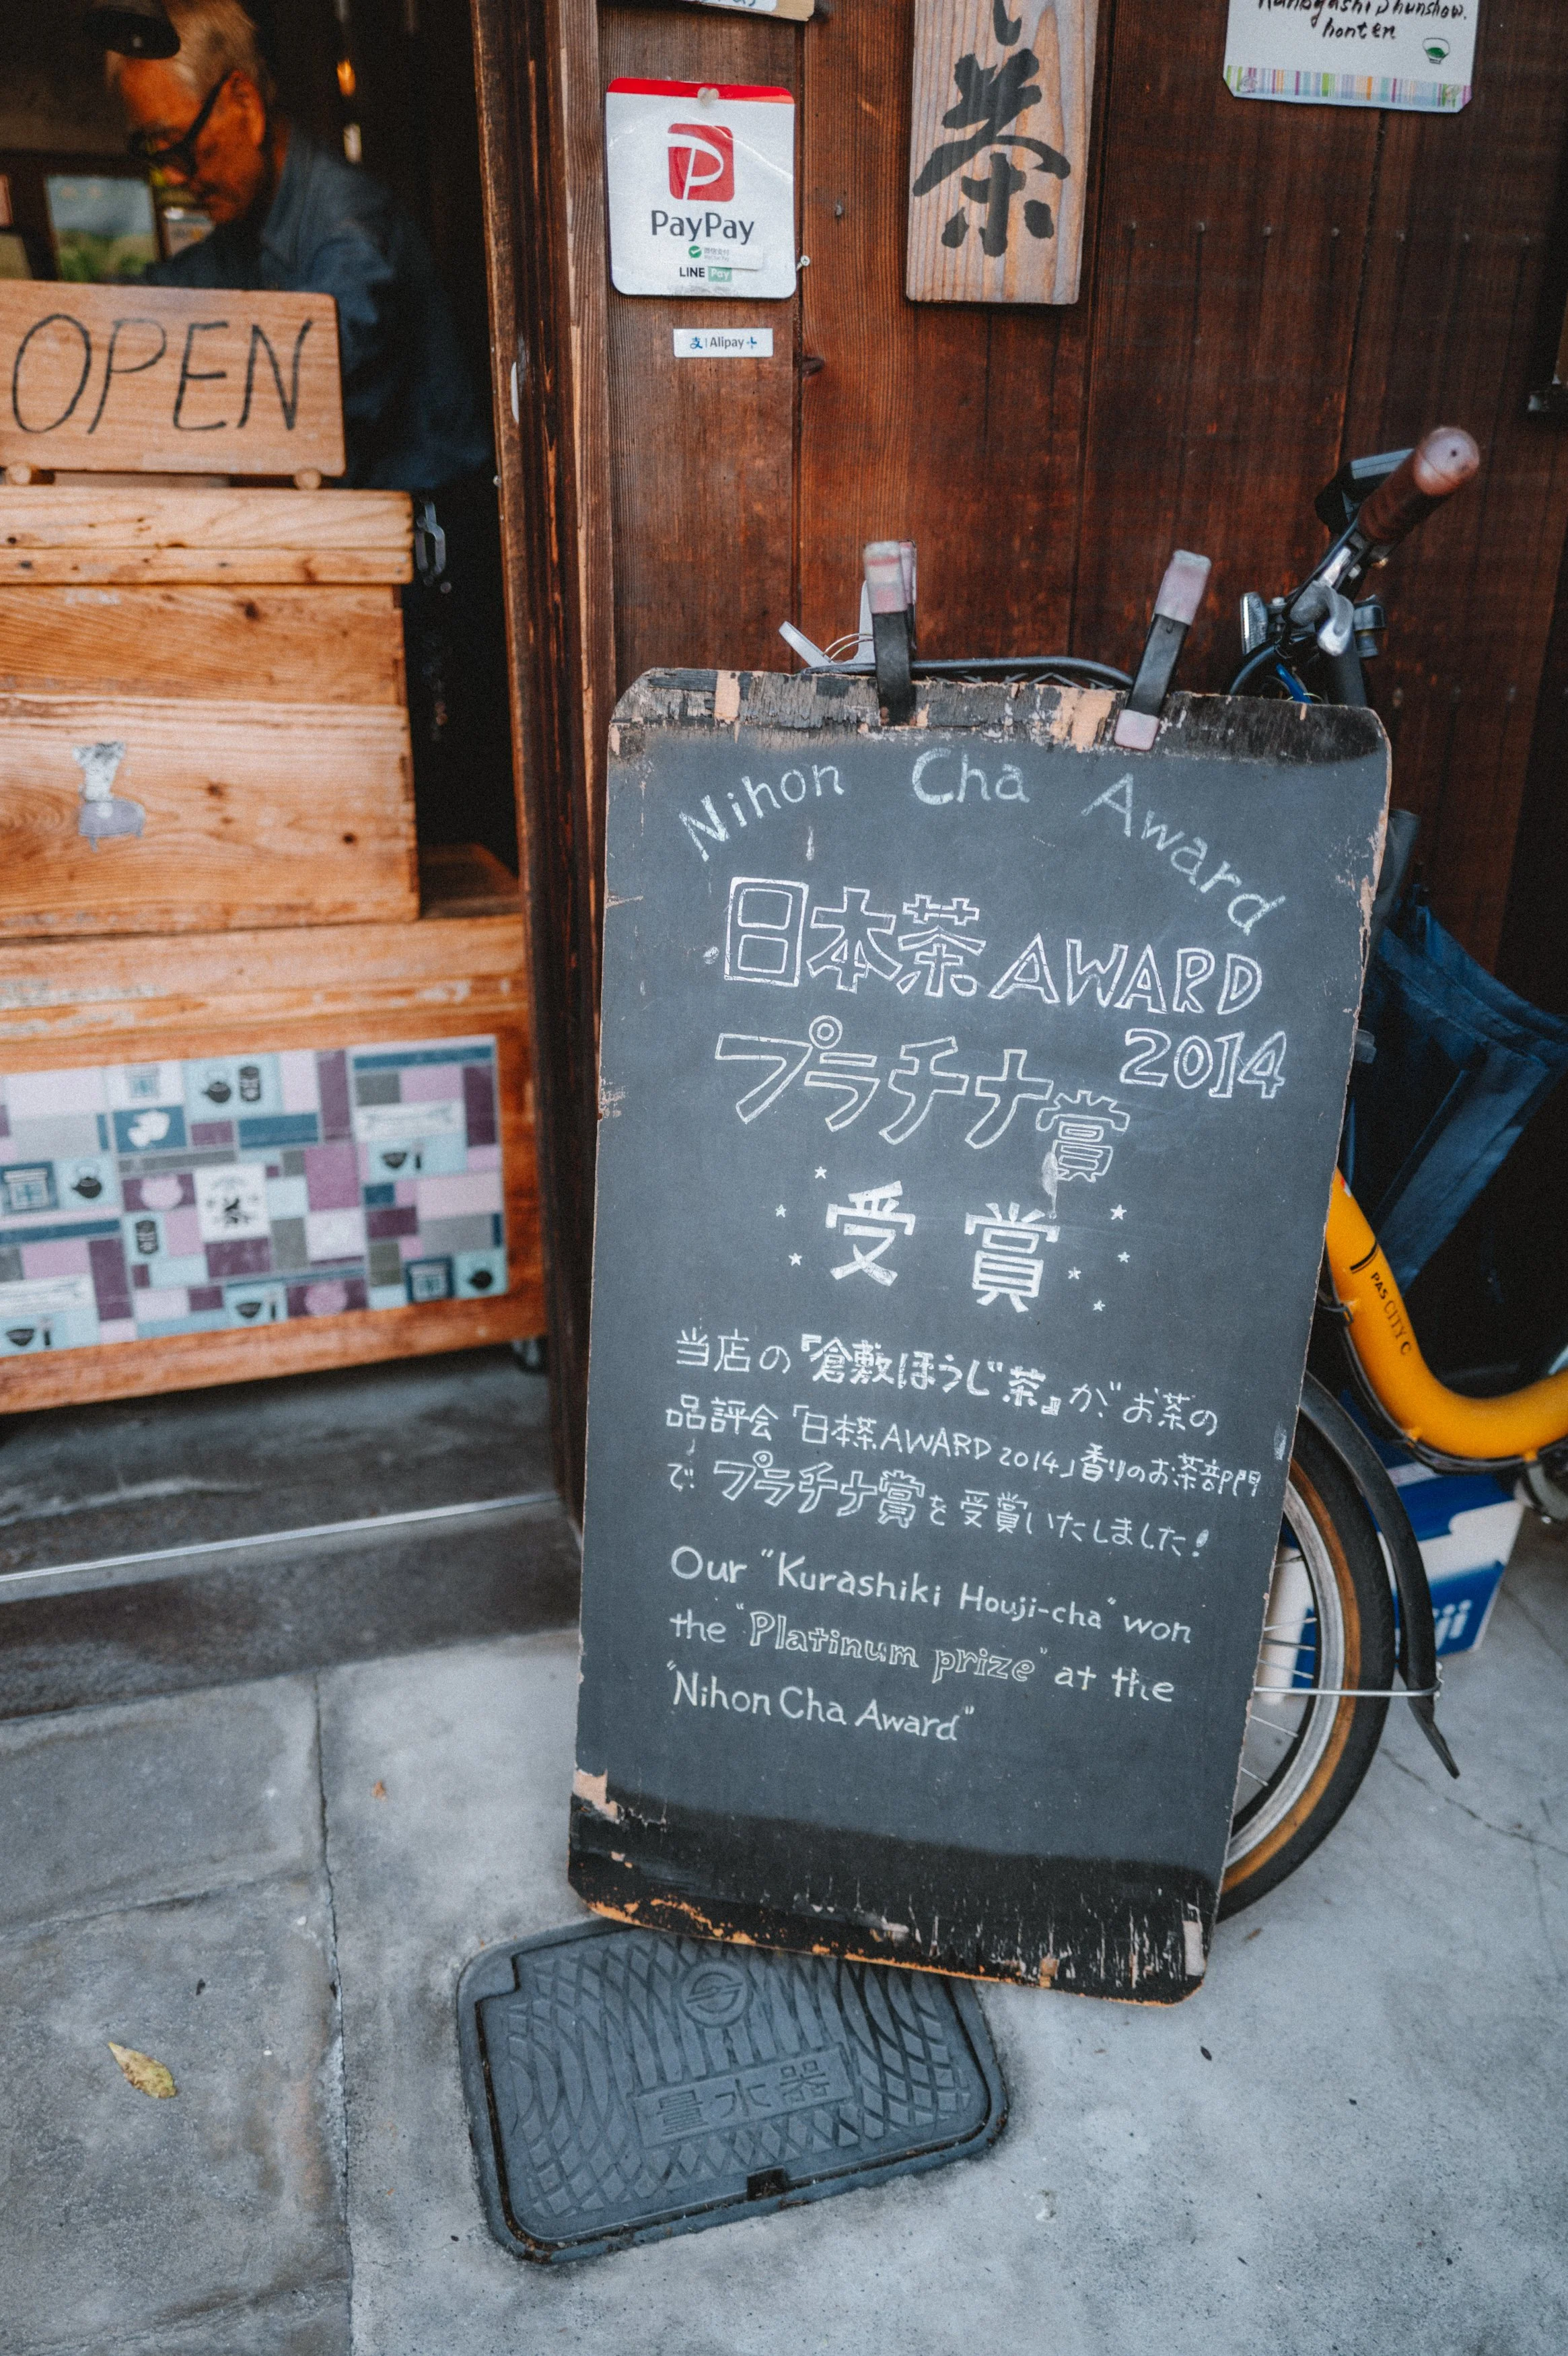 Hanagashi Shunshow.
honten
茶
PayPay
LINE Pay
支 | Alipay+
OPEN
Nihon Cha Award
日本茶 AWARD
2014
プラチナ賞
受賞
当店の『倉敷ほうじ茶』がお茶の
品評会「日本茶AWARD 2014」香りのお茶部門
で プラチナ賞を受賞いたしました!
Our "Kurashiki Houji-cha" won
the "Platinum prize" at the
"Nihon Cha Award"
PAS CITY C
量水器